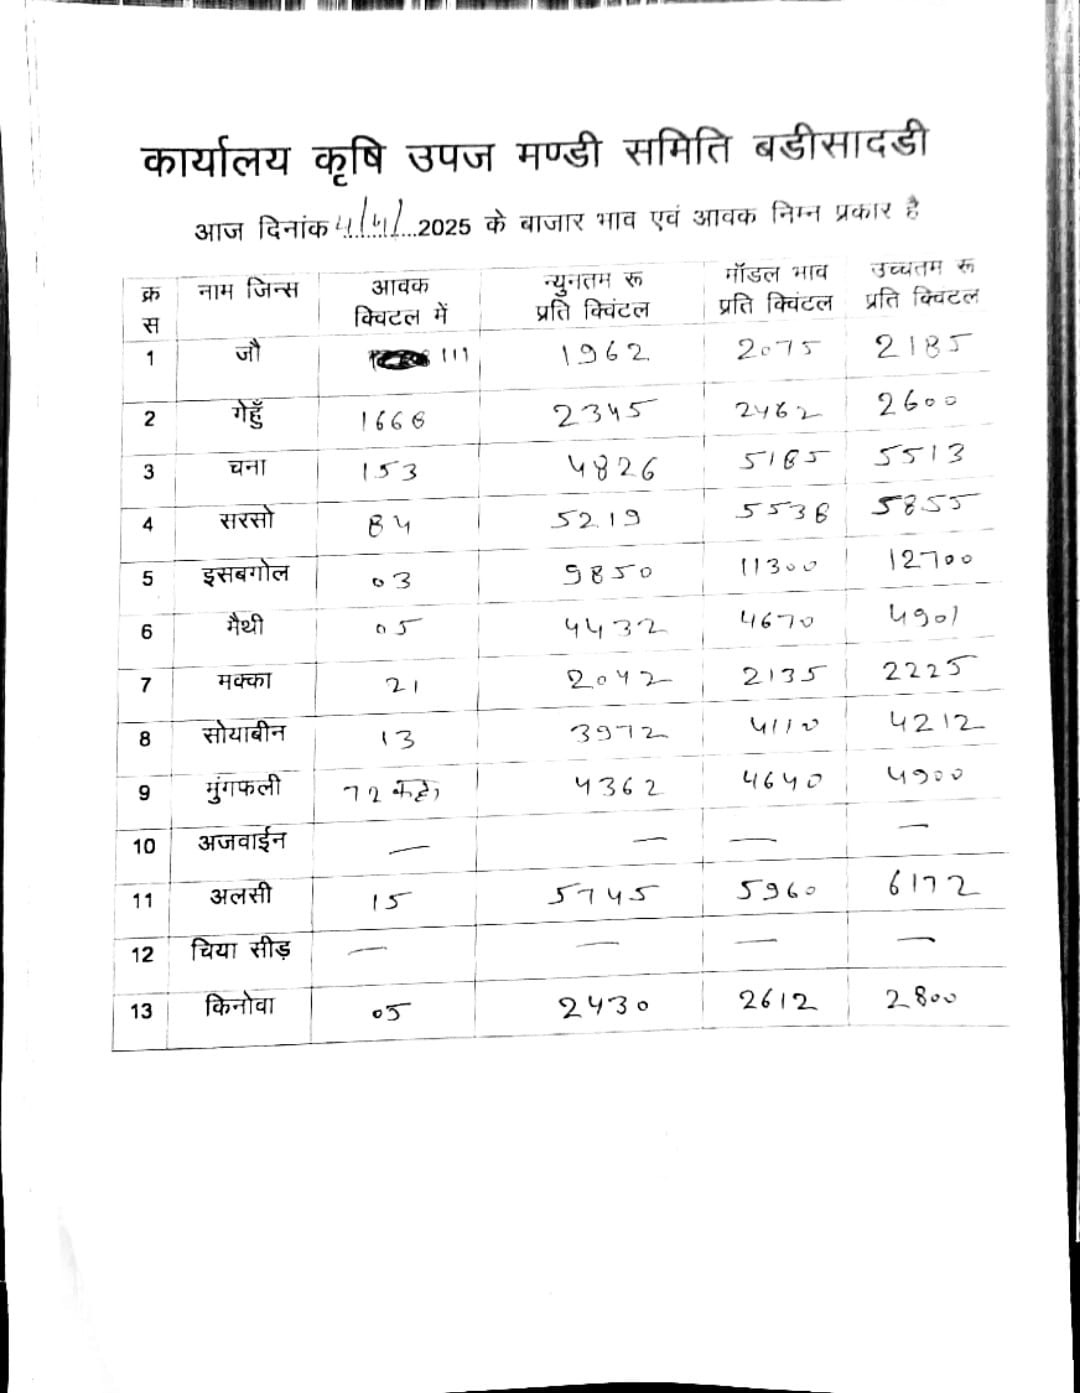 कार्यालय कृषि उपज मण्डी समिति बडीसादडी
आज दिनांक 4/4/ 2025 के बाजार भाव एवं आवक निम्न प्रकार है
क्र स नाम जिन्स आवक क्विटल में न्युनतम रू प्रति क्विंटल मॉडल भाव प्रति क्विंटल उच्चतम रू प्रति क्विंटल
1 जौ 111 1962 2075 2185
2 गेहुँ 1666 2345 2462 2600
3 चना 153 4826 5165 5513
4 सरसो 84 5219 5536 5855
5 इसबगोल 03 9850 11300 12700
6 मैथी 05 4432 4670 4901
7 मक्का 21 2042 2135 2225
8 सोयाबीन 13 3972 4110 4212
9 मुंगफली 72 4362 4640 4900
10 अजवाईन — — — —
11 अलसी 15 5745 5960 6172
12 चिया सीड़ — — — —
13 किनोवा 05 2430 2612 2800